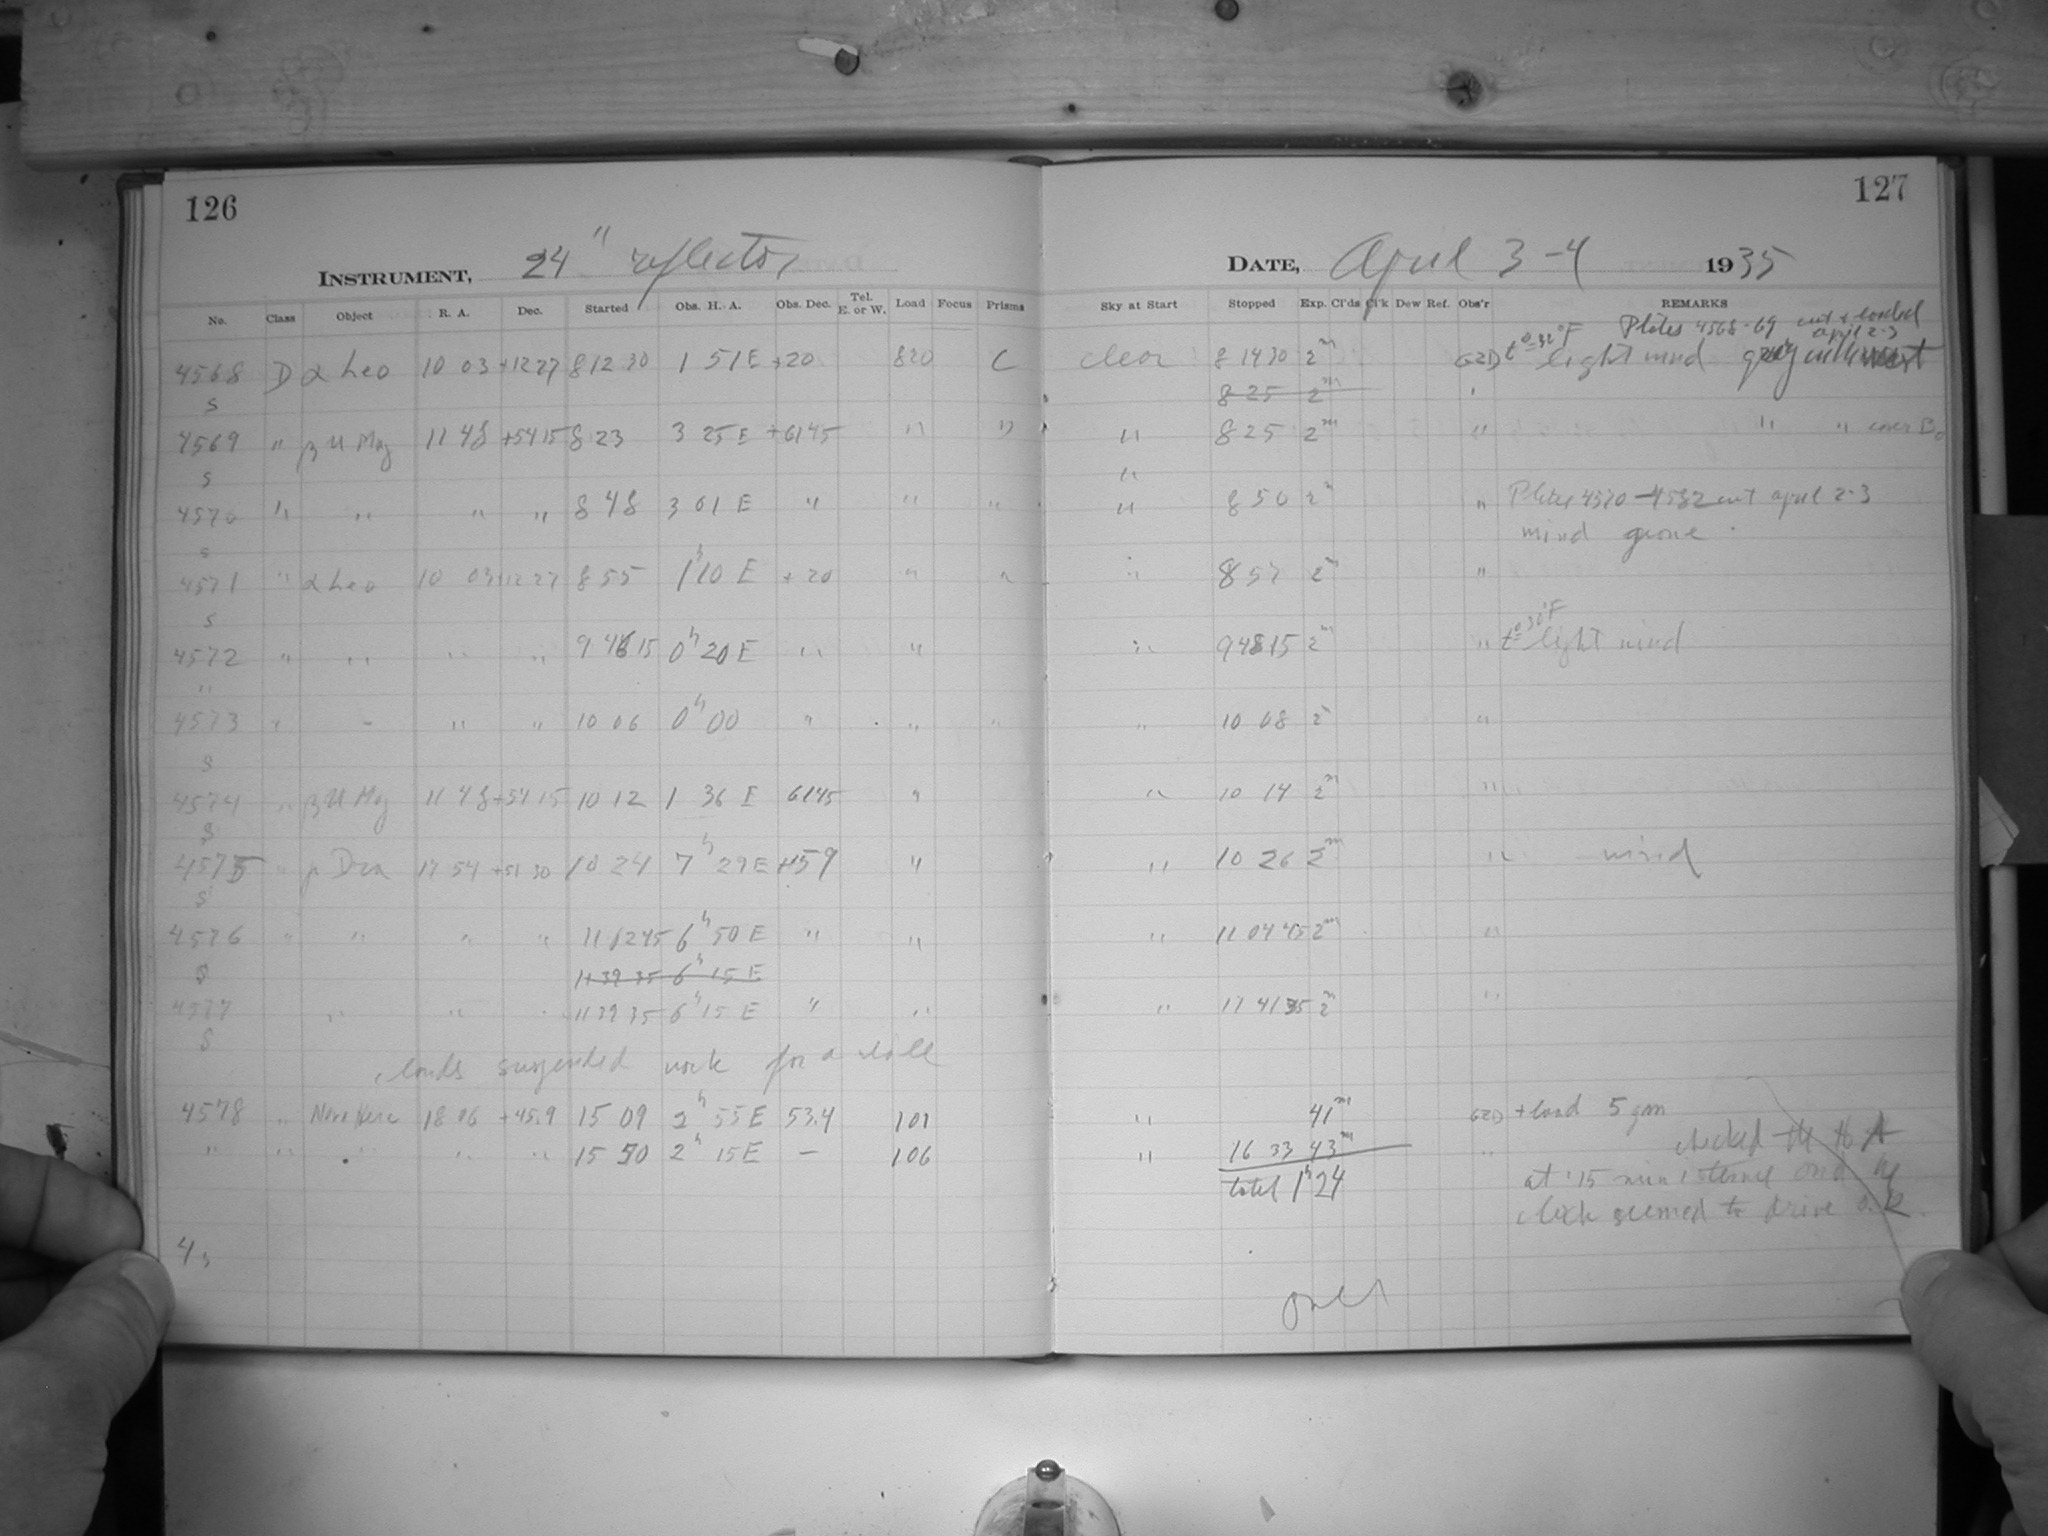 126
INSTRUMENT, 24" reflector
No. Class Object R. A. Dec. Started Obs. H. A. Obs. Dec. Tel. E. or W. Load Focus Prisms
4568 D α Leo 10 03 +12 27 8 12 30 1 51 E +20 820 C
S
4569 " β U Maj 11 48 +54 15 8 23 3 25 E +61 45 " "
S
4570 " " " " 8 48 3 01 E " " "
S
4571 " α Leo 10 03 +12 27 8 55 1h 10 E +20 " "
S
4572 " " " " 9 46 15 0h 20 E " "
"
4573 " " " " 10 06 0h 00 " " "
S
4574 " β U Maj 11 48 +54 15 10 12 1 36 E 61 45 "
S
4575 " Dra 17 54 +51 30 10 24 7h 29 E +59 "
S
4576 " " " " 11 02 45 6h 50 E " "
S 11 39 35 6h 15 E
4577 " " " 11 39 35 6h 15 E " "
S
clouds suspended work for a while
4578 " Nova Herc 18 06 +45.9 15 09 2h 55 E 53.4 101
" " " " " 15 50 2h 15 E - 106
4
127
DATE, April 3-4 1935
Sky at Start Stopped Exp. Cl'ds Cl'k Dew Ref. Obs'r REMARKS
Plates 4568-69 cut & loaded
april 2-3
clear 8 14 30 2m GZD t°=32°F light wind
8 25 2m
" 8 25 2m " " " cover
"
" 8 50 2m " Plates 4570-4582 cut april 2-3
wind gone
" 8 57 2m "
" 9 48 15 2m " t°=30°F light wind
" 10 08 2m "
" 10 14 2m "
" 10 26 2m " wind
" 11 04 45 2m "
" 11 41 35 2m "
" 41m GZD + load 5 gm
" 16 33 43m " checked
total 1h 24 at 15 min
clock seemed to drive O.K.
over